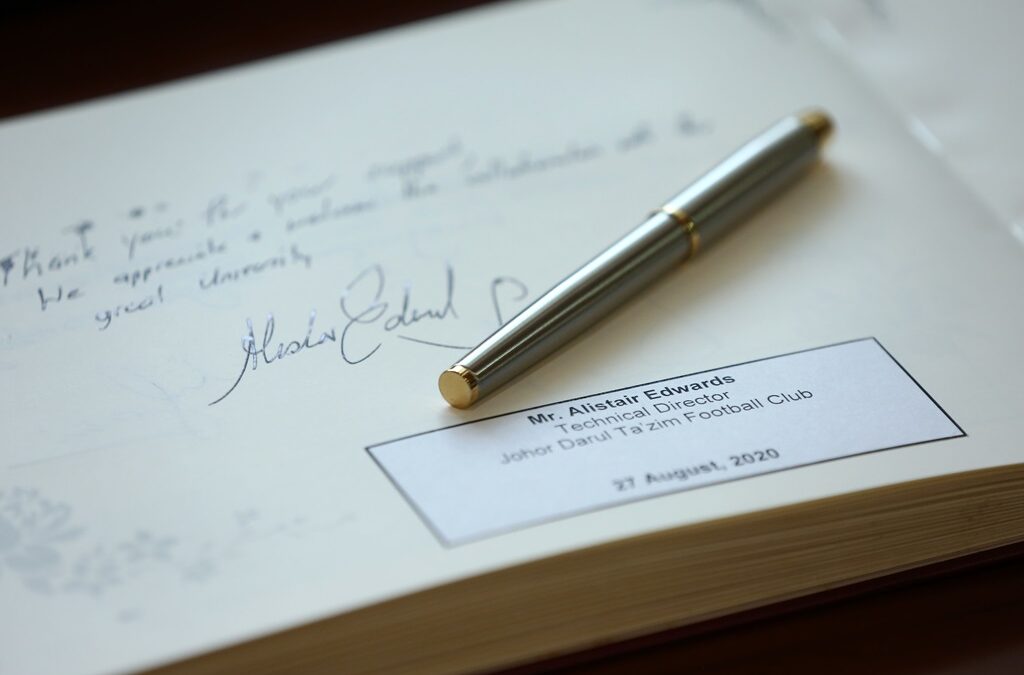 Thank you for your support.
We appreciate & welcome the collaboration with the
great University
Alistair Edwards
Mr. Alistair Edwards
Technical Director
Johor Darul Ta'zim Football Club
27 August, 2020